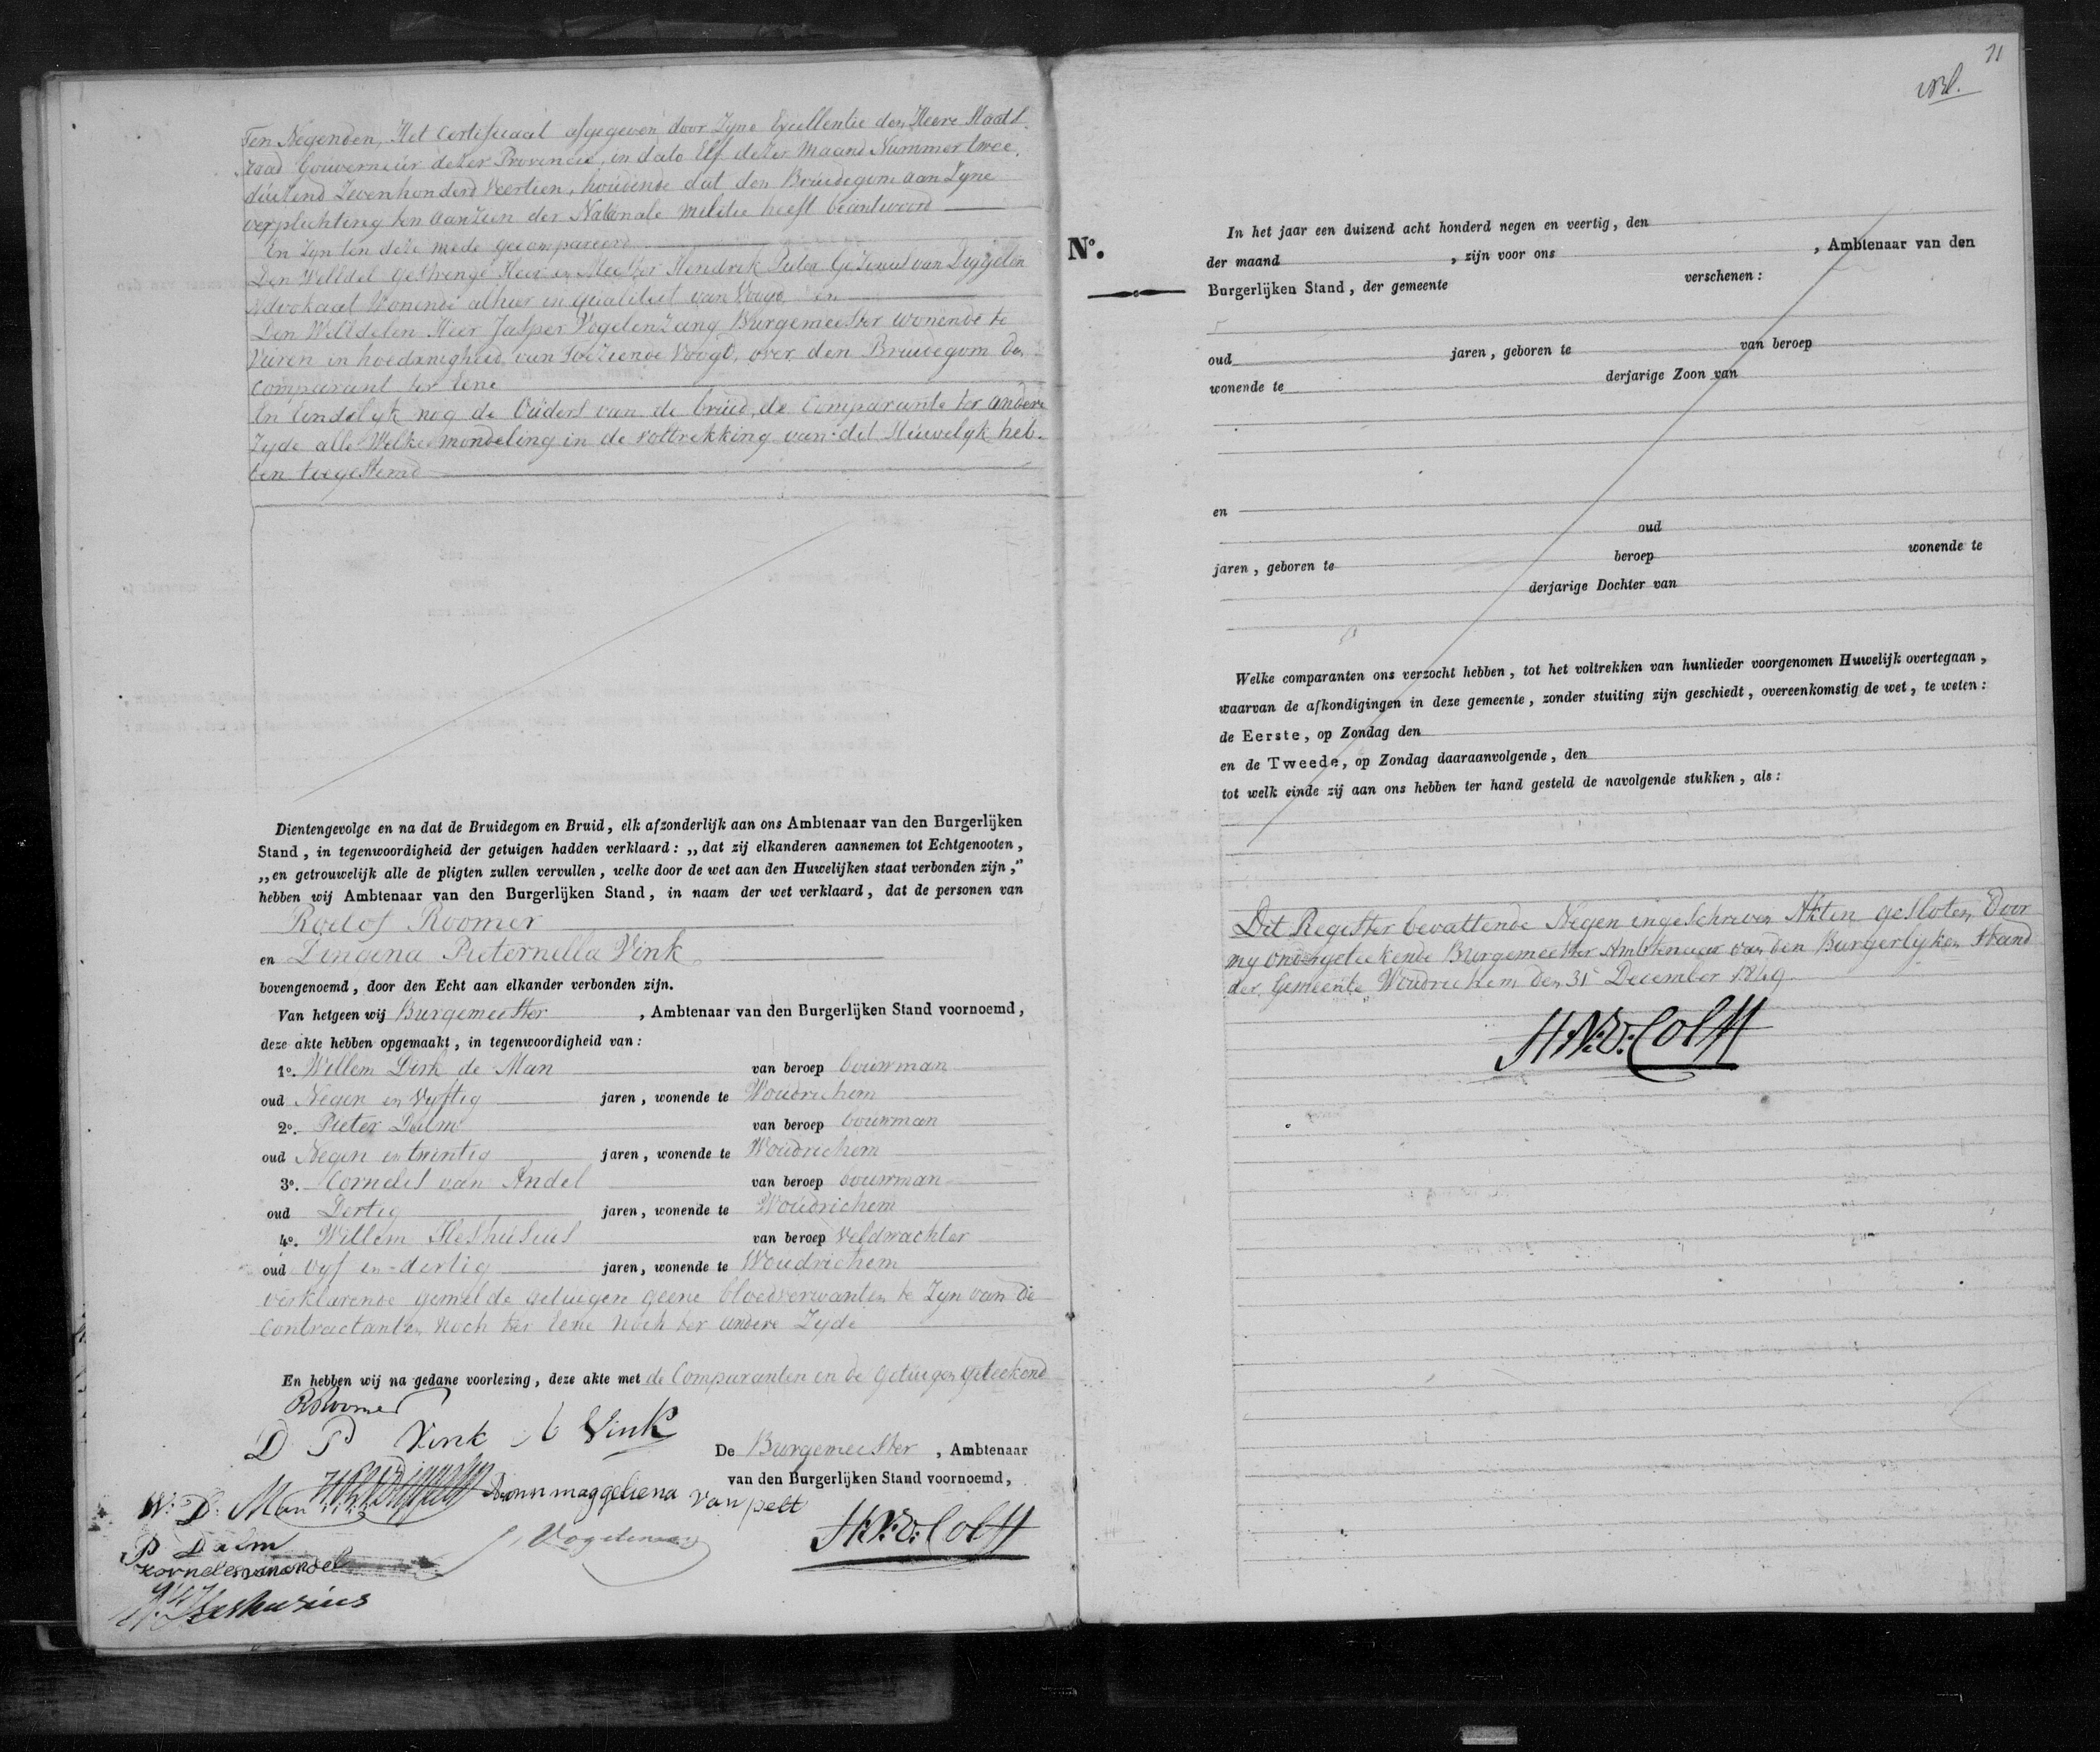 Ten Negenden, Het Certificaat afgegeven door Zyne Excellentie den Heere Staats
raad Gouverneur dezer Provincie, in dato Elf dezer Maand Nummer twee
duizend Zevenhonderd Veertien, houdende dat den Bruidegom aan Zyne
verplichting ten aanzien der Nationale Militie heeft beantwoord
En zyn ten deze mede gecompareerd
Den WelEdel Gestrenge Heer en Meester Hendrik Pieter Gezenus van Diggelen
Advokaat Wonende alhier in qualiteit van Voogd, en
Den WelEdelen Heer Jasper Vogelenzang Burgemeester wonende te
Vuren in hoedanigheid van Toeziende Voogd, over den Bruidegom den
Comparant ter Eene
En Eindelyk nog de Ouders van de bruid, de Comparante ter andere
Zyde alle Welke mondeling in de voltrekking van dit Huwelyk heb-
ben toegestemd
Dientengevolge en na dat de Bruidegom en Bruid, elk afzonderlijk aan ons Ambtenaar van den Burgerlijken
Stand, in tegenwoordigheid der getuigen hadden verklaard: „dat zij elkanderen aannemen tot Echtgenooten,
„en getrouwelijk alle de pligten zullen vervullen, welke door de wet aan den Huwelijken staat verbonden zijn,"
hebben wij Ambtenaar van den Burgerlijken Stand, in naam der wet verklaard, dat de personen van
Roelof Roomer
en Dingena Pieternella Vink
bovengenoemd, door den Echt aan elkander verbonden zijn.
Van hetgeen wij Burgemeester, Ambtenaar van den Burgerlijken Stand voornoemd,
deze akte hebben opgemaakt, in tegenwoordigheid van:
1o. Willem Dirk de Man van beroep bouwman
oud Negen en Vyftig jaren, wonende te Woudrichem
2o. Pieter Dalm van beroep bouwman
oud Negen en twintig jaren, wonende te Woudrichem
3o. Kornelis van Andel van beroep bouwman
oud Dertig jaren, wonende te Woudrichem
4o. Willem Heshusius van beroep Veldwachter
oud Vyf en dertig jaren, wonende te Woudrichem
verklarende gemelde getuigen geene bloedverwanten te Zyn van de
Contractanten Noch ter Eene Noch ter andere Zyde
En hebben wij na gedane voorlezing, deze akte met de Comparanten en de getuigen geteekend
R Roomer
D P Vink Vink
De Burgemeester, Ambtenaar
van den Burgerlijken Stand voornoemd,
W: D: Man
maggeliena van pelt
P Dalm
Vogelenzang
H:N:v:Colff
kornelis van andel
W. Heshusius
71
No.
In het jaar een duizend acht honderd negen en veertig, den
der maand , zijn voor ons , Ambtenaar van den
Burgerlijken Stand, der gemeente verschenen:
oud jaren, geboren te van beroep
wonende te derjarige Zoon van
en
oud
jaren, geboren te beroep wonende te
derjarige Dochter van
Welke comparanten ons verzocht hebben, tot het voltrekken van hunlieder voorgenomen Huwelijk overtegaan,
waarvan de afkondigingen in deze gemeente, zonder stuiting zijn geschiedt, overeenkomstig de wet, te weten:
de Eerste, op Zondag den
en de Tweede, op Zondag daaraanvolgende, den
tot welk einde zij aan ons hebben ter hand gesteld de navolgende stukken, als:
Dit Register bevattende Negen ingeschreven Akten gesloten, Door
my ondergeteekende Burgemeester Ambtenaar van den Burgerlyken Stand
der Gemeente Woudrichem den 31 December 1849
H:N:v:Colff